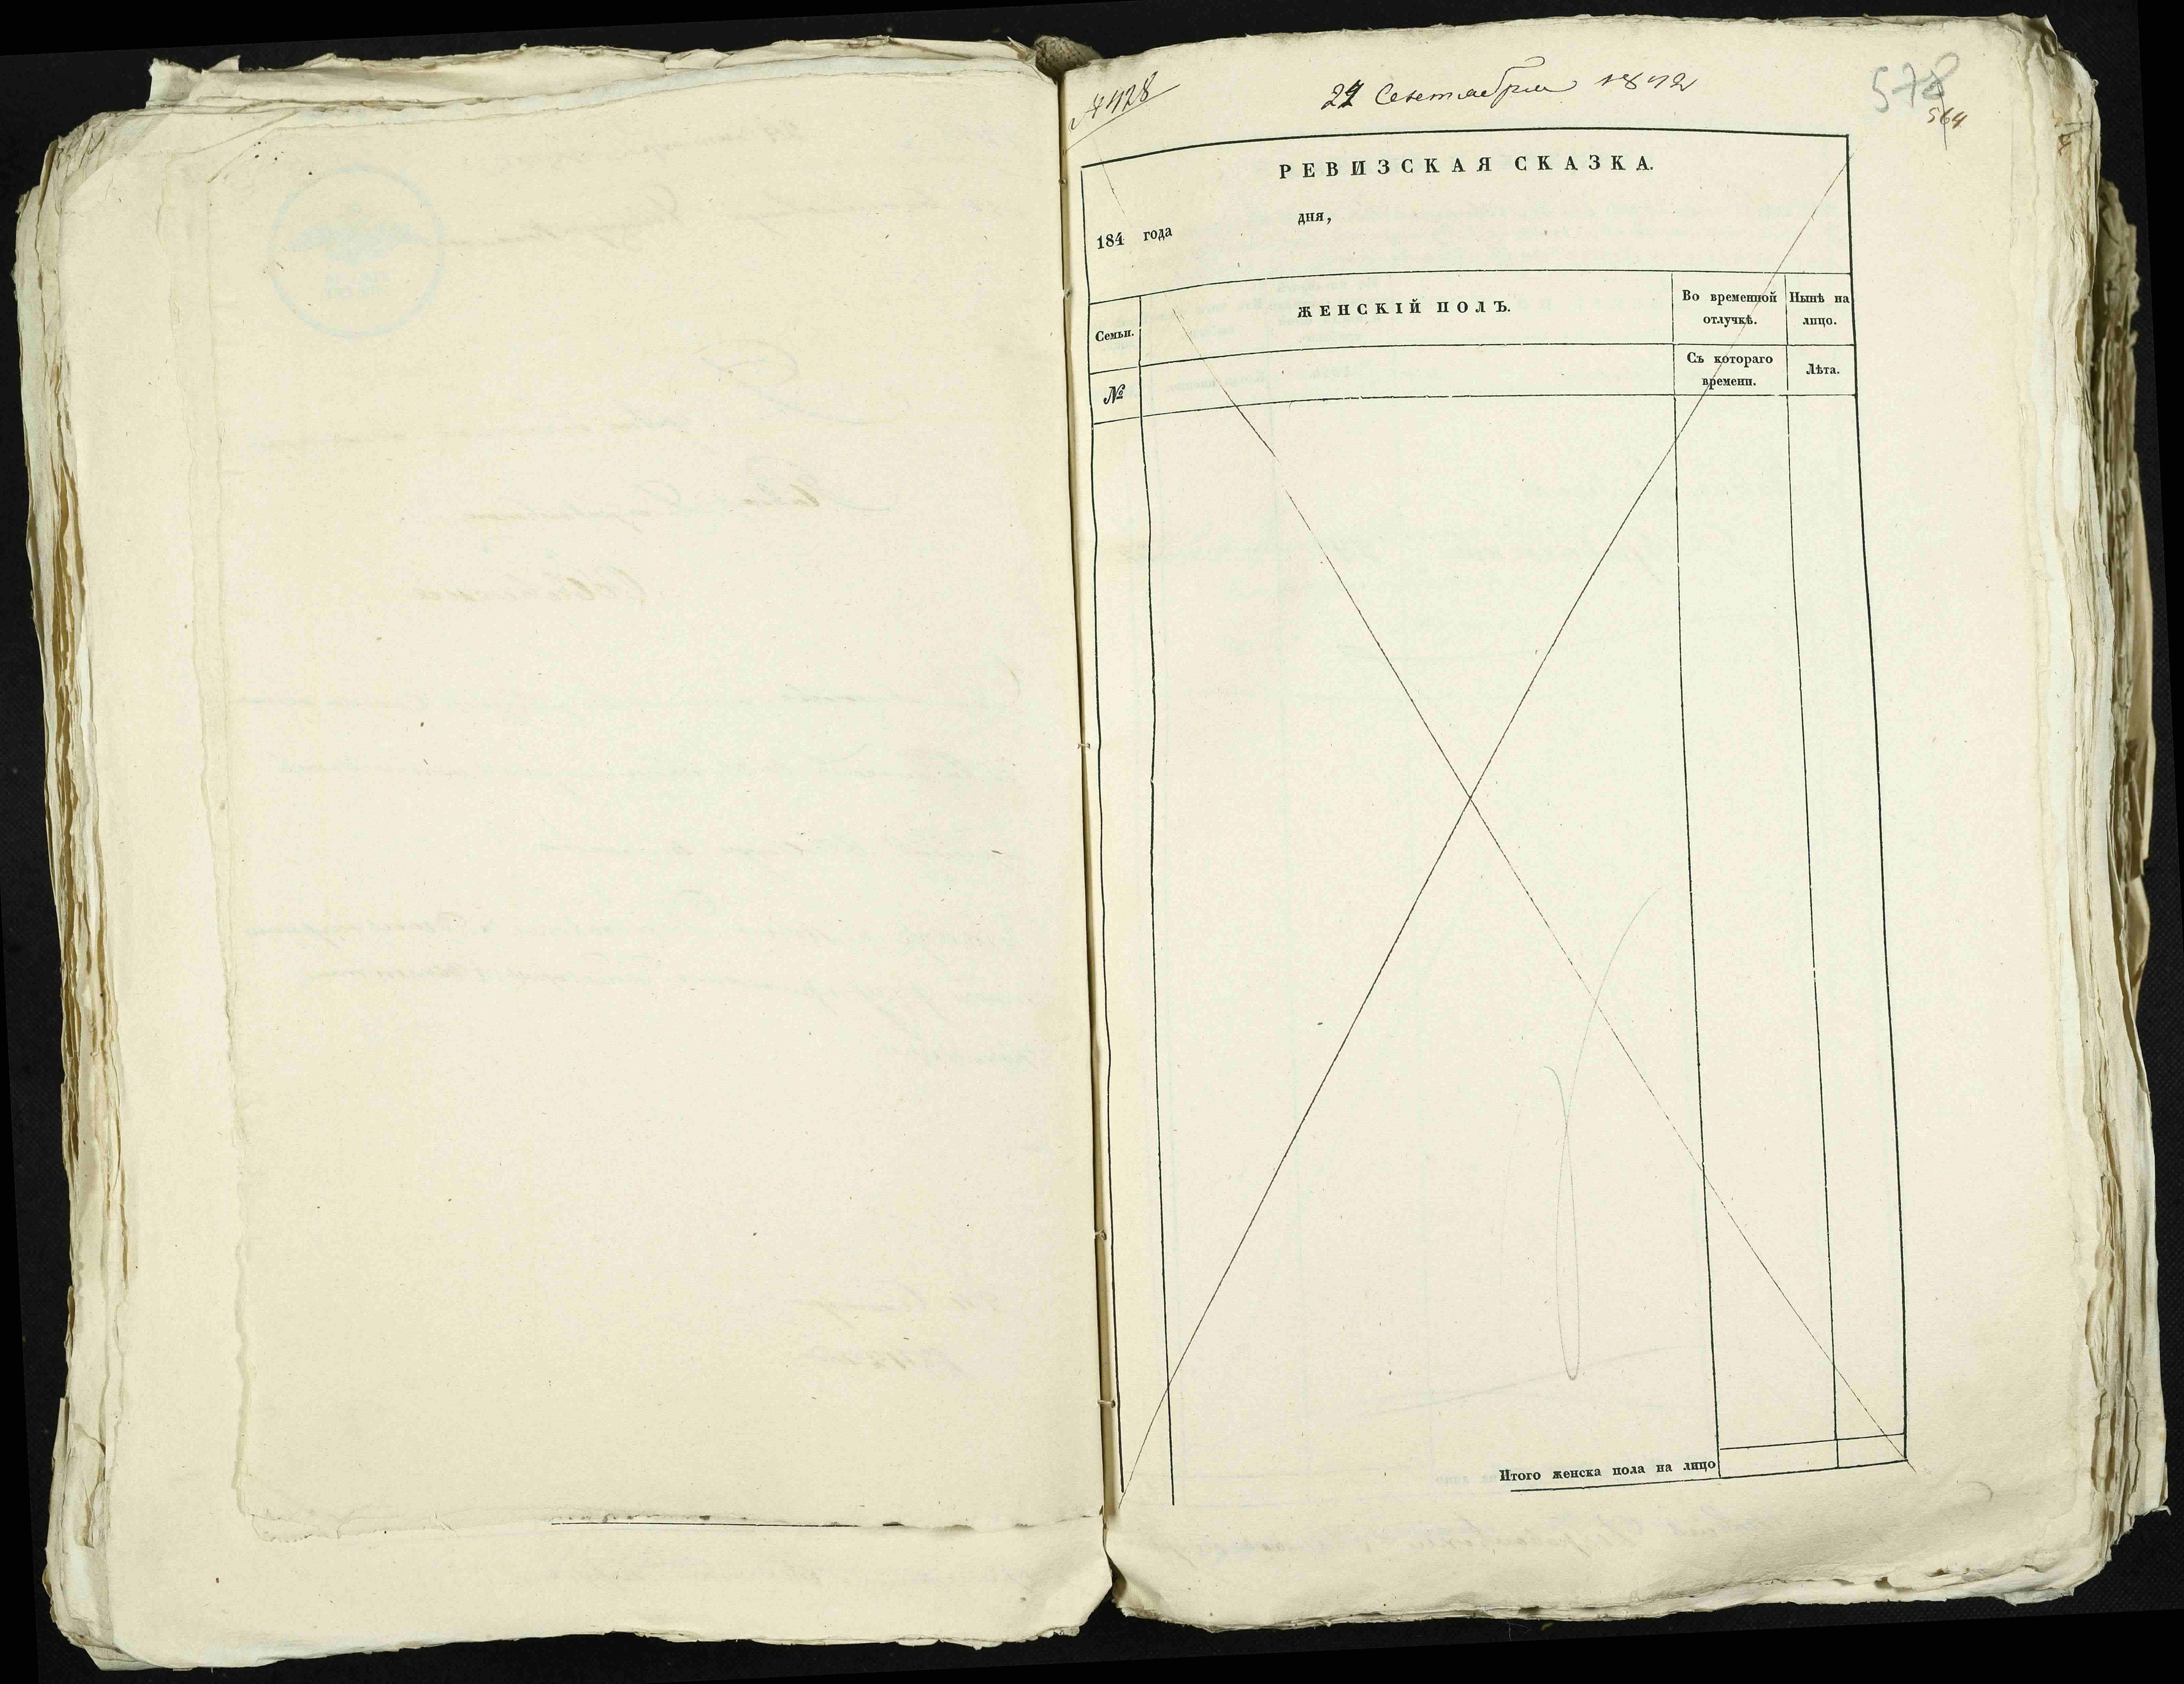 № 428
24 Сентября 1842
578
564
РЕВИЗСКАЯ СКАЗКА.
184 года дня,
Семьи.
ЖЕНСКІЙ ПОЛЪ.
Во временной отлучкѣ.
Нынѣ на лицо.
№
Съ котораго времени.
Лѣта.
Итого женска пола на лицо